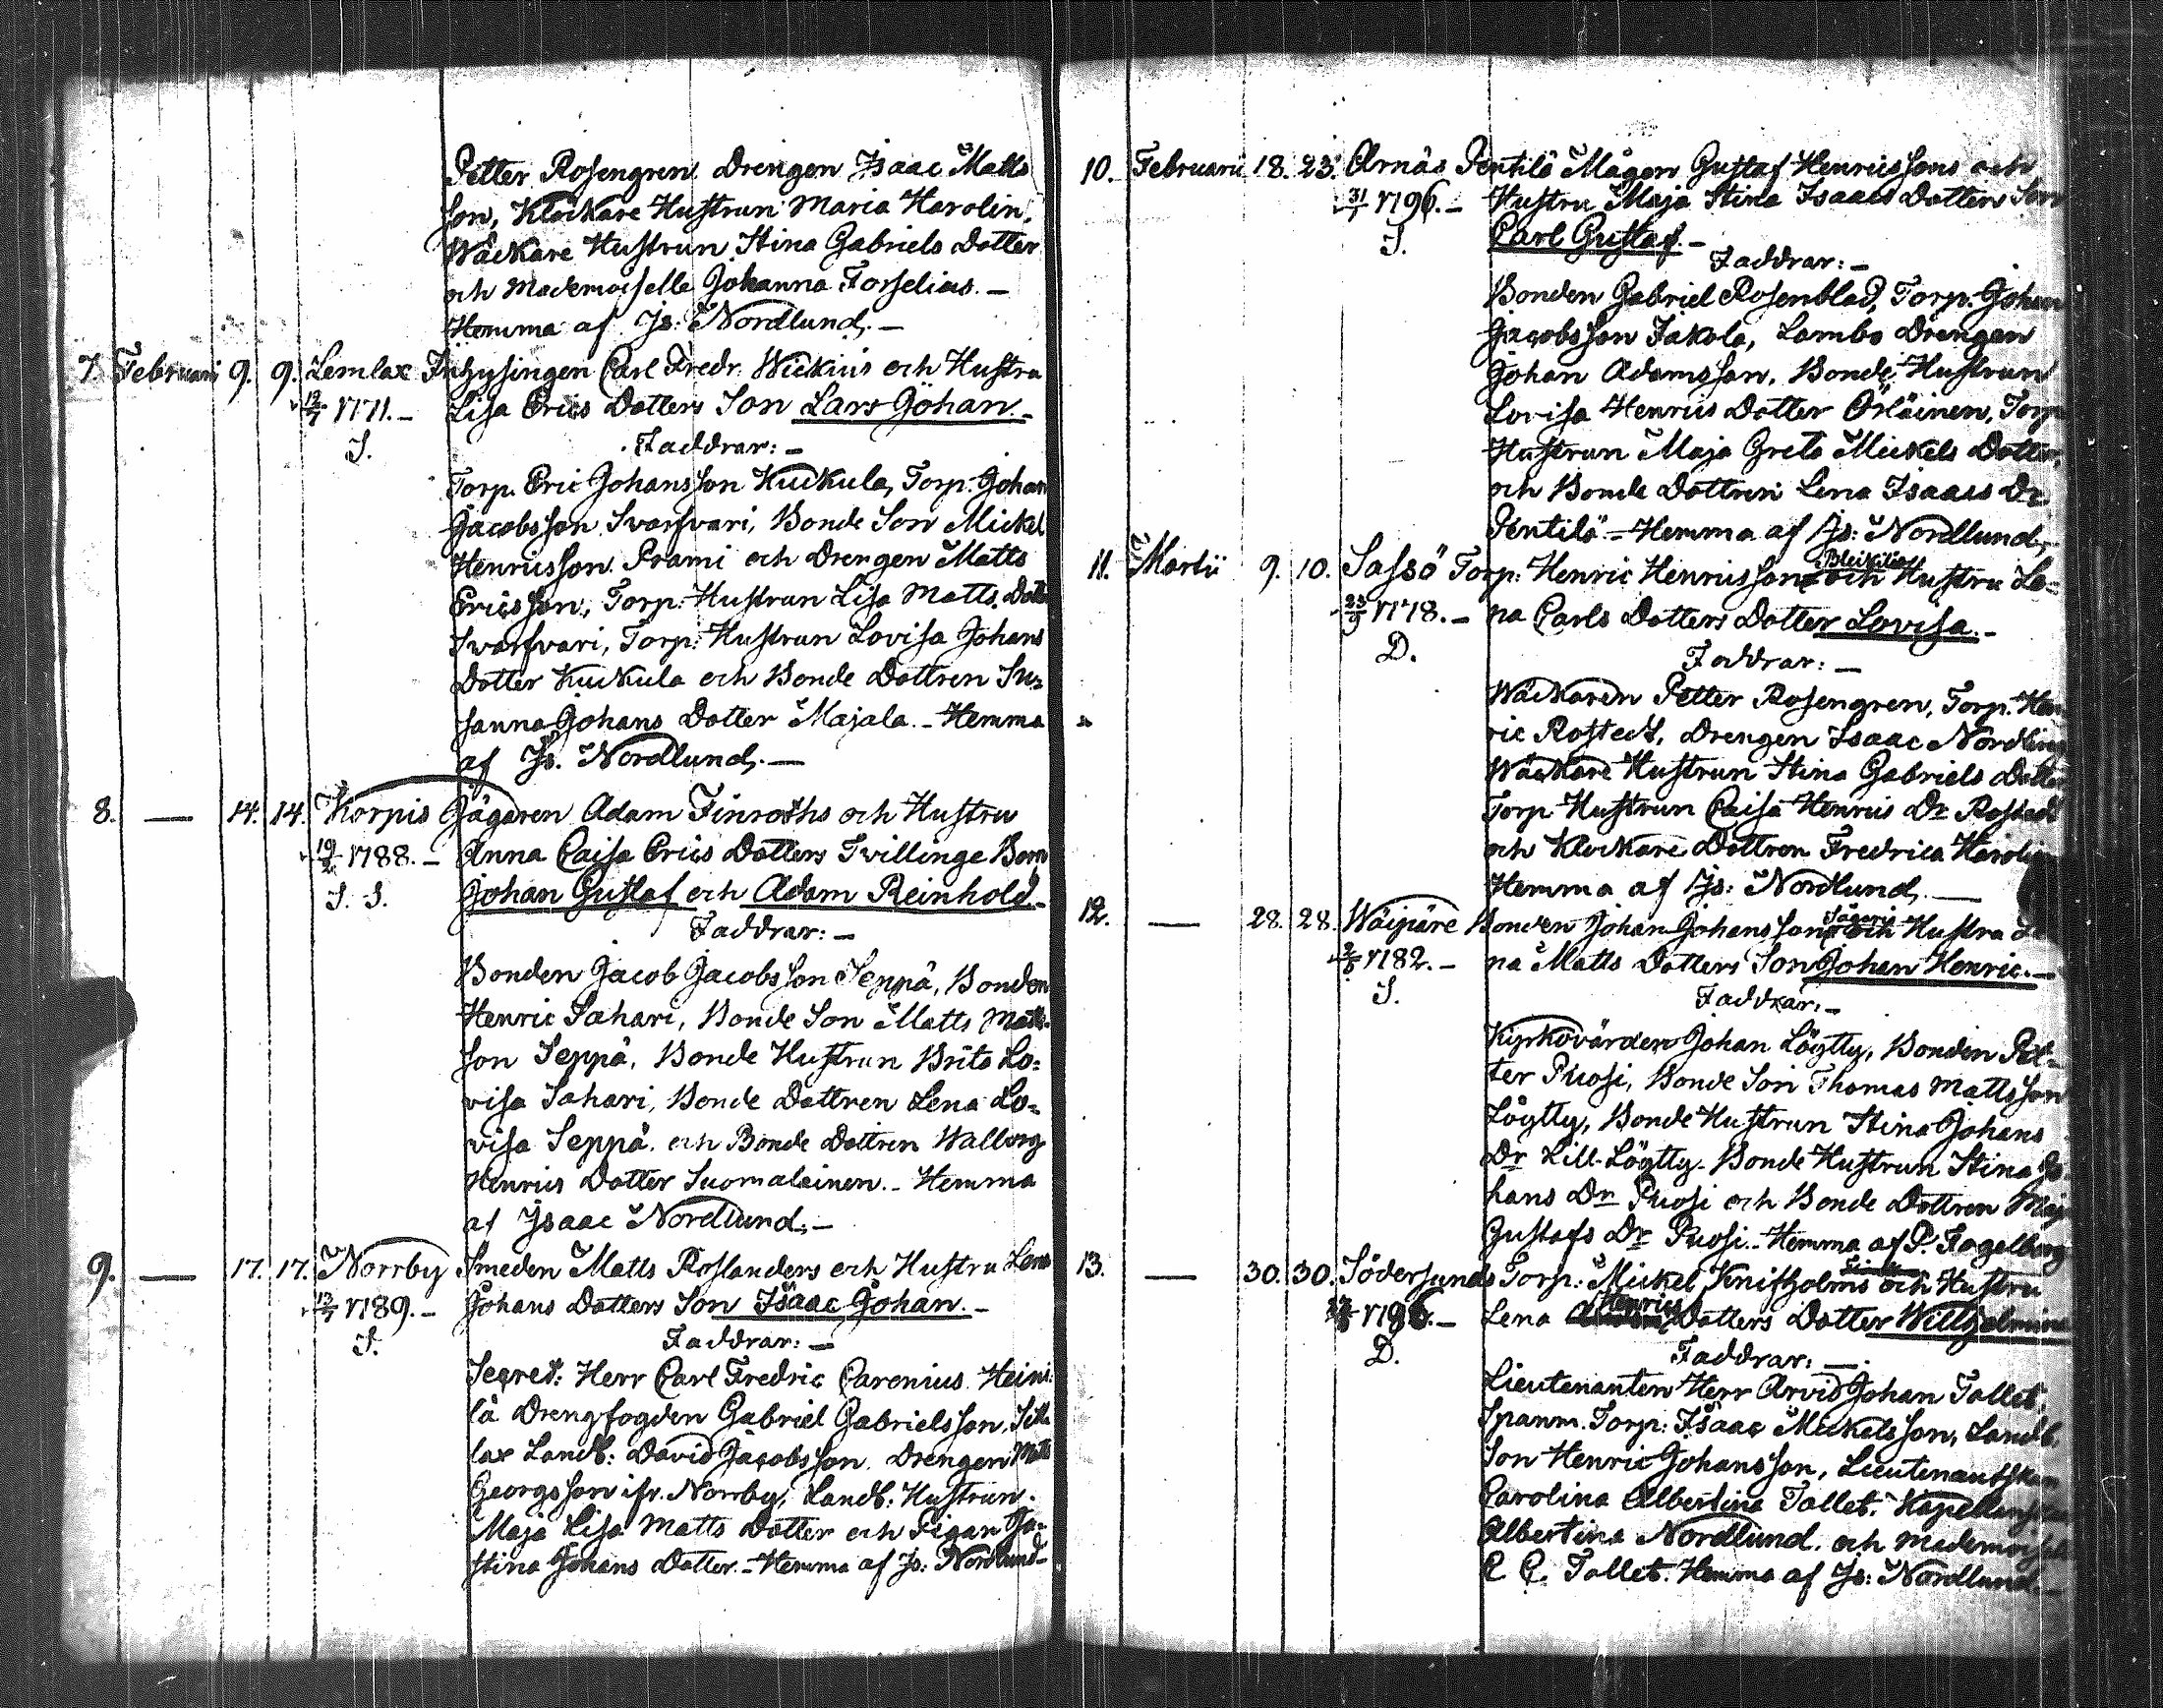 Petter Rosengren, Drengen Isaac Matts
son, Klockare Hustrun Maria Harolin,
Wäckare Hustrun Stina Gabriels Dotter
och Mademoiselle Johanna Forselius. —
Hemma af Is: Nordlund. —
7. Februarii 9. 9. Lemlax Inhysingen Carl Fredr. Wickius och Hustru
1771. — Lisa Erics Dotters Son Lars Johan. —
S. Faddrar: —
Torp. Eric Johansson Kuckula, Torp. Johan
Jacobsson Svarfvari, Bonde Son Mickel
Henricsson Prami och Drengen Matts
Ericsson, Torp. Hustrun Lisa Matts Dott
Svarfvari, Torp: Hustrun Lovisa Johans
Dotter Kuckula och Bonde Dottren Su=
sanna Johans Dotter Majala. — Hemma
af Is. Nordlund. —
8. — 14. 14. Korpis Jägaren Adam Finroths och Hustru
19/2 1788. — Anna Caisa Erics Dotters Tvillinge Barn
S. S. Johan Gustaf och Adam Reinhold. —
Faddrar: —
Bonden Jacob Jacobsson Seppä, Bonden
Henric Sahari, Bonde Son Matts Matts-
son Seppä, Bonde Hustrun Brita Lo=
visa Sahari, Bonde Dottren Lena Lo=
visa Seppä. och Bonde Dottren Walborg
Henrics Dotter Suomalainen. — Hemma
af Isaac Nordlund. —
9. — 17. 17. Norrby Smeden Matts Roslanders och Hustru Lena
1789. — Johans Dotters Son Isaac Johan. —
S. Faddrar: —
Secret: Herr Carl Fredric Carenius. Heini
lä Drengfogden Gabriel Gabrielsson,
lax Landb: David Jacobsson. Drengen Matts
Georgsson ifr. Norrby, Landb: Hustrun
Maja Lisa Matts Dotter och Pigan Ja=
stina Johans Dotter. — Hemma af Is: Nordlund —
10. Februarii 18. 23. Arnäs Pentilä Mågen Gustaf Henricssons och
31/1 1796. — Hustru Maja Stina Isaacs Dotters Son
S. Carl Gustaf. —
Faddrar: —
Bonden Gabriel Rosenblad, Torp. Johan
Jacobsson Jakola, Lambo Drengen
Johan Adamsson, Bonde Hustrun
Lovisa Henrics Dotter Örläinen, Torp
Hustrun Maja Greta Mickels Dotter,
och Bonde Dottren Lena Isaacs Dr
Pentilä — Hemma af Is: Nordlund, —
Bleikilias
11. Martii 9. 10. Salsö Torp: Henric Henricssons och Hustru Le=
23/9 1778. — na Carls Dotters Dotter Lovisa. —
D. Faddrar: —
Wäckaren Petter Rosengren, Torp. Hen
ric Rostedt, Drengen Isaac Nordling
Wäckare Hustrun Stina Gabriels Dotter
Torp Hustrun Caisa Henrics Dr Rostedt
och Klockare Dottren Fredrica Harolin
Hemma af Is: Nordlund. —
12. — 28. 28. Wäipäre Bonden Johan Johanssons och Hustru Le
1782. — na Matts Dotters Son Johan Henric. —
S. Faddrar: —
Kyrkovärden Johan Löytty, Bonden Pet=
ter Puosi, Bonde Son Thomas Mattsson
Löytty, Bonde Hustrun Stina Johans
Dr Lill-Löytty. Bonde Hustrun Stina Jo
hans Dr Puosi och Bonde Dottren Maja
Gustafs Dr Puosi. — Hemma af P. Fagelborg
13. — 30. 30. Södersunds Torp: Mickel Knifholms och Hustru
Henrics
1796. — Lena Dotters Dotter Willhelmina
D. Faddrar: —
Lieutenanten Herr Arvid Johan Tallet,
Spanm. Torp: Isaac Mickelsson, Landb.
Son Henric Johansson, Lieutenantskan
Carolina Albertina Tallet. Kapellanskan
Albertina Nordlund. och Mademoiselle
C. C. Tallet. Hemma af Is: Nordlund. —